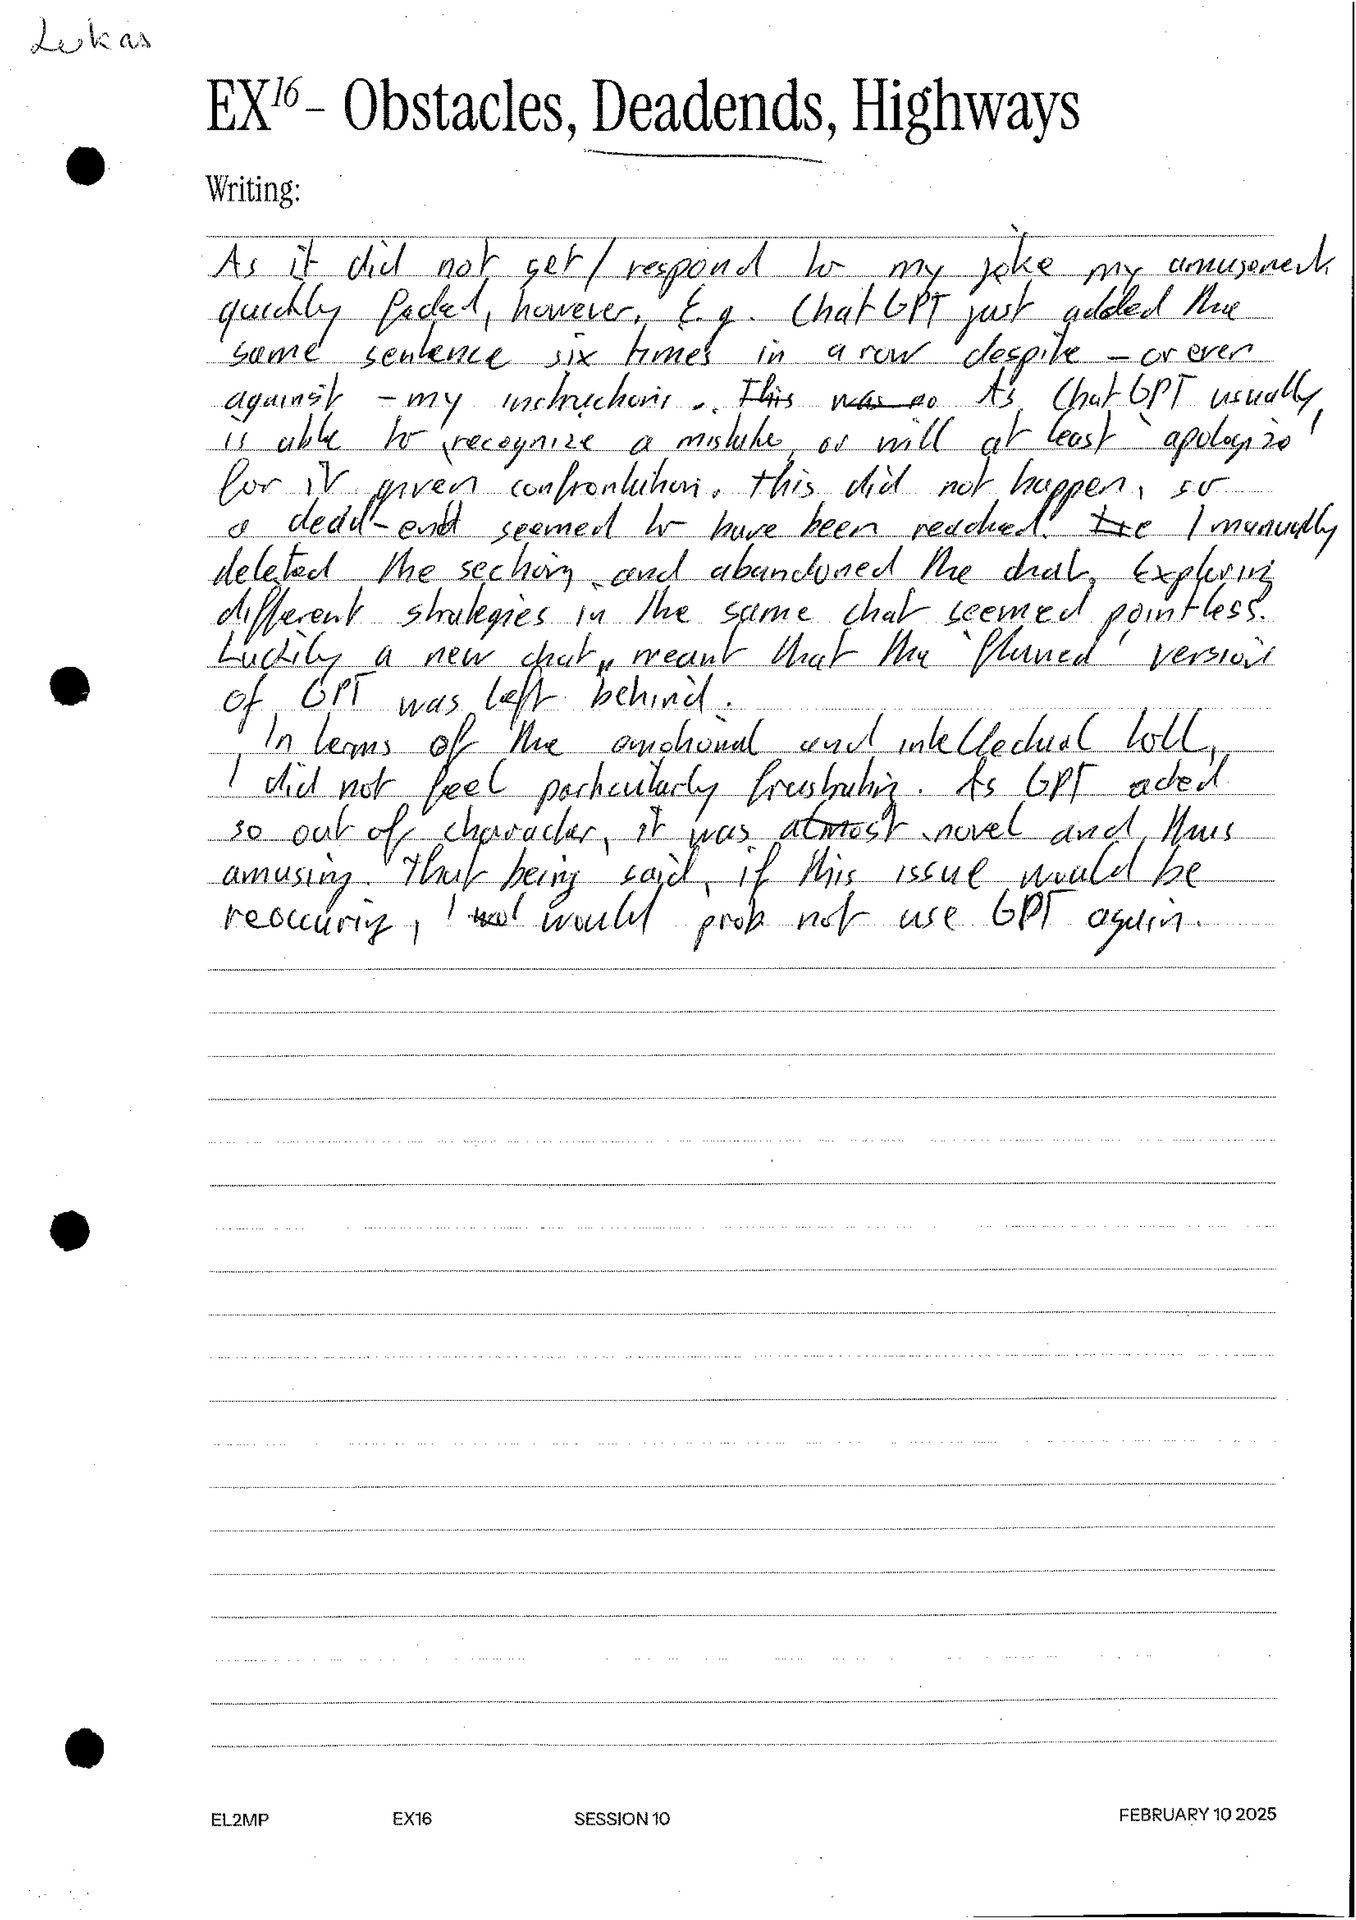 Lukas
EX16 – Obstacles, Deadends, Highways
Writing:
As it did not get/respond to my joke my amusement
quickly faded, however. E.g. ChatGPT just added the
same sentence six times in a row despite – or even
against – my instructions. This was so As ChatGPT usually
is able to recognize a mistake, or will at least 'apologize'
for it given confrontation. This did not happen, so
a dead-end seemed to have been reached. I manually
deleted the section and abandoned the chat. Exploring
different strategies in the same chat seemed pointless.
Luckily a new chat meant that the 'flawed' version
of GPT was left behind.
In terms of the emotional and intellectual toll,
I did not feel particularly frustrating. As GPT acted
so out of character, it was almost novel and thus
amusing. That being said, if this issue would be
reoccuring, I would prob not use GPT again.
EL2MP EX16 SESSION 10 FEBRUARY 10 2025